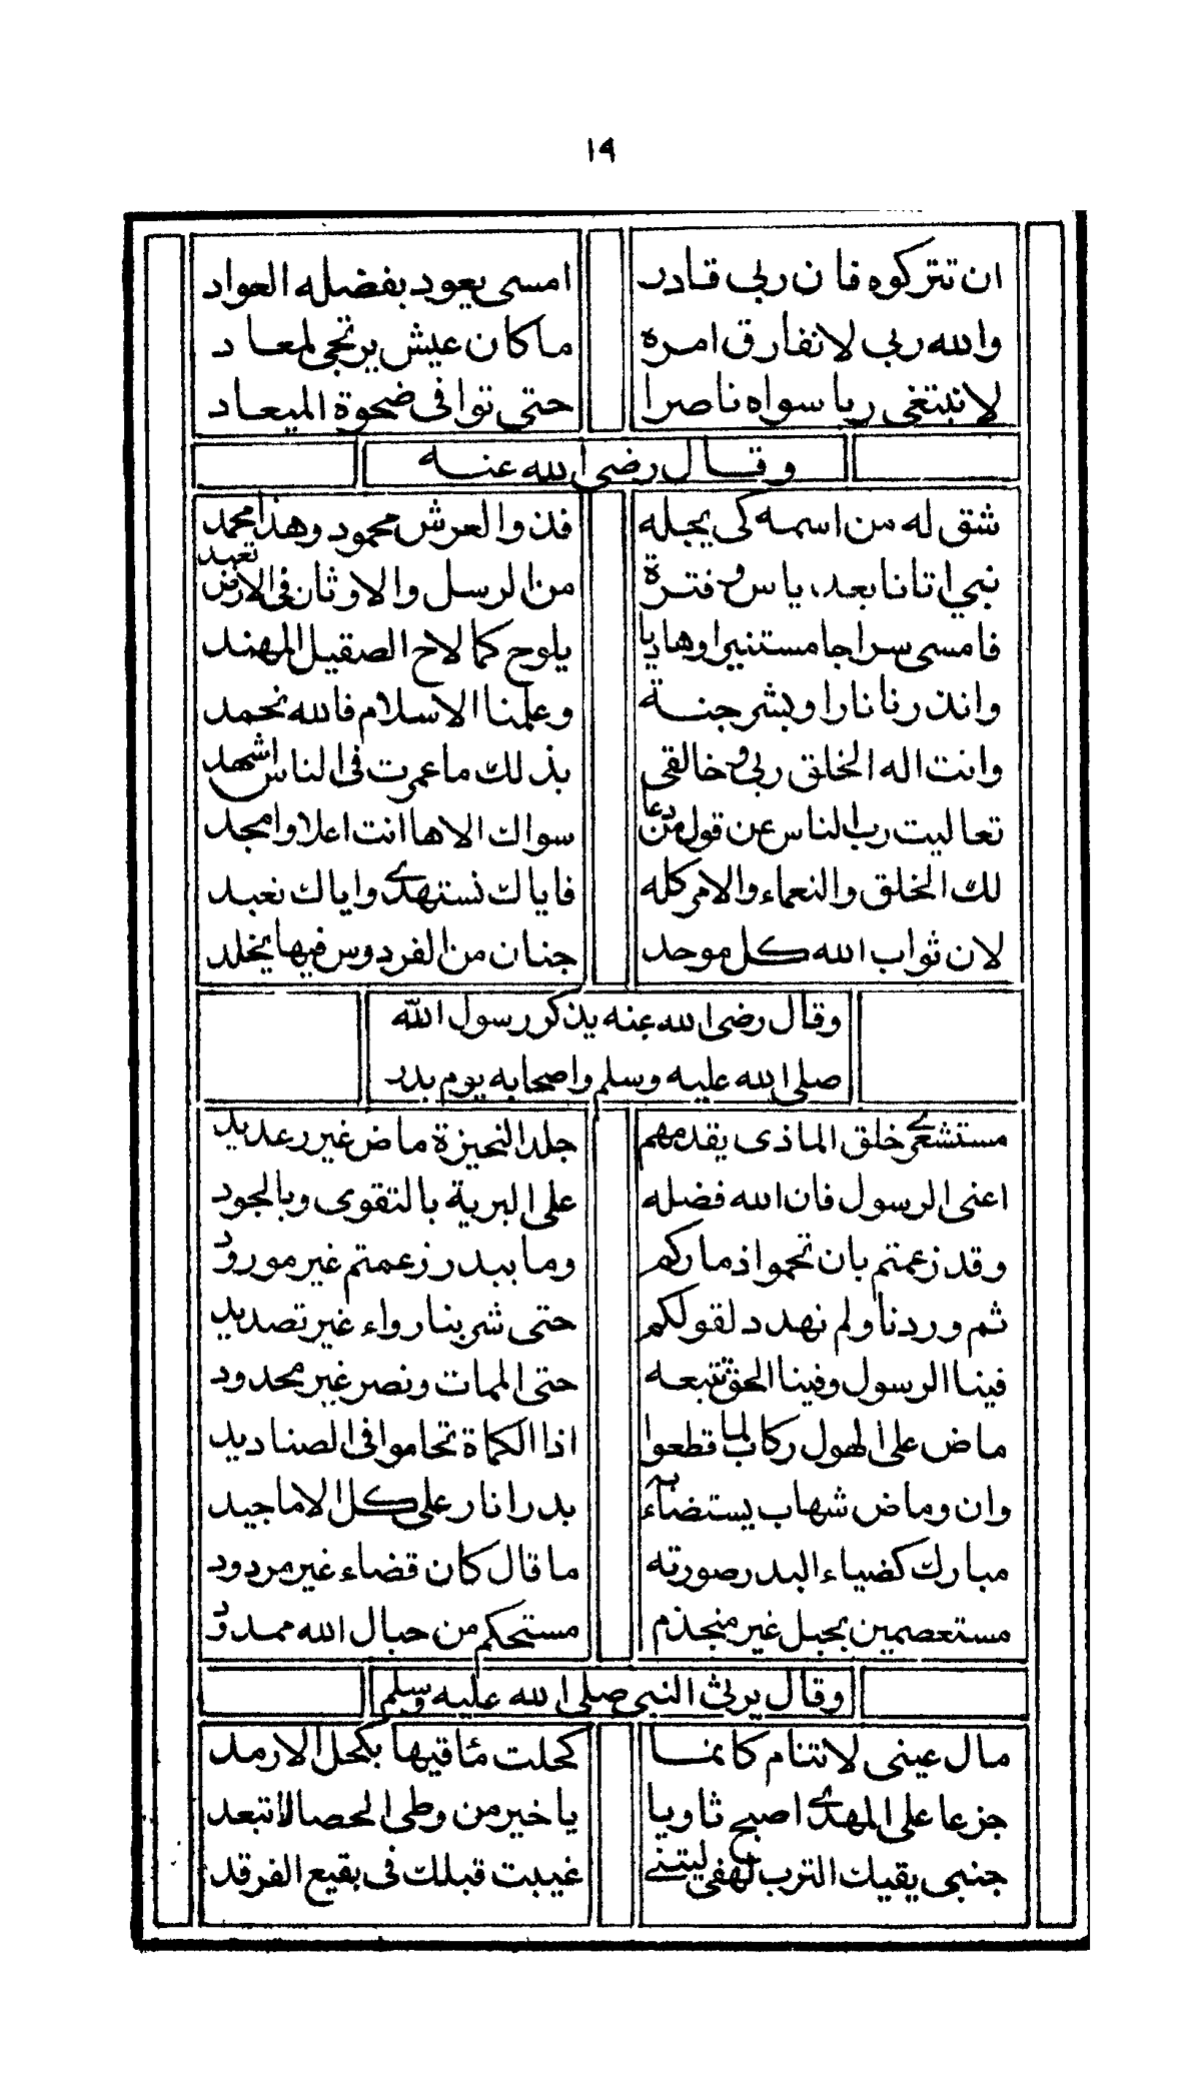 ١٩
ان تتركوه فان ربى قادر امسى يعود بفضله العواد
والله ربى لا نفارق امره ماكان عيش يرتجى لمعاد
لا نبتغى ربا سواه ناصرا حتى نوافى ضحوة الميعاد
وقال رضى الله عنه
شق له من اسمه كى يجله فذو العرش محمود وهذا محمد
نبي اتانا بعد ياس وفترة من الرسل والاوثان فى الارض تعبد
فامسى سراجا مستنيرا وهاديا يلوح كما لاح الصقيل المهند
وانذرنا نارا وبشر جنة وعلمنا الاسلام فالله نحمد
وانت اله الخلق ربى وخالقى بذلك ماعمرت فى الناس اشهد
تعاليت رب الناس عن قول من دعا سواك الاها انت اعلا وامجد
لك الخلق والنعماء والامر كله فاياك نستهدى واياك نعبد
لان ثواب الله كل موحد جنان من الفردوس فيها يخلد
وقال رضى الله عنه يذكر رسول الله
صلى الله عليه وسلم واصحابه يوم بدر
مستشعرى خلق الماذى يقدمهم جلد النحيزة ماض غير رعديد
اعنى الرسول فان الله فضله على البرية بالتقوى وبالجود
وقد زعمتم بان تحموا ذماركم وما ببدر زعمتم غير مورود
ثم وردنا ولم نهدد لقولكم حتى شربنا رواء غير تصديد
فينا الرسول وفينا الحق نتبعه حتى الممات ونصر غير محدود
ماض على الهول ركاب لما قطعوا اذا الكماة تحاموا فى الصناديد
وان وماض شهاب يستضاء به بدر انار على كل الاماجيد
مبارك كضياء البدر صورته ما قال كان قضاء غير مردود
مستعصمين بحبل غير منجذم مستحكم من حبال الله ممدود
وقال يرثى النبى صلى الله عليه وسلم
مال عينى لا تنام كانما كحلت مئاقيها بكحل الارمد
جزعا على المهدى اصبح ثاويا يا خير من وطى الحصا لا تبعد
جنبى يقيك الترب لهفى ليتنى غيبت قبلك فى بقيع الفرقد